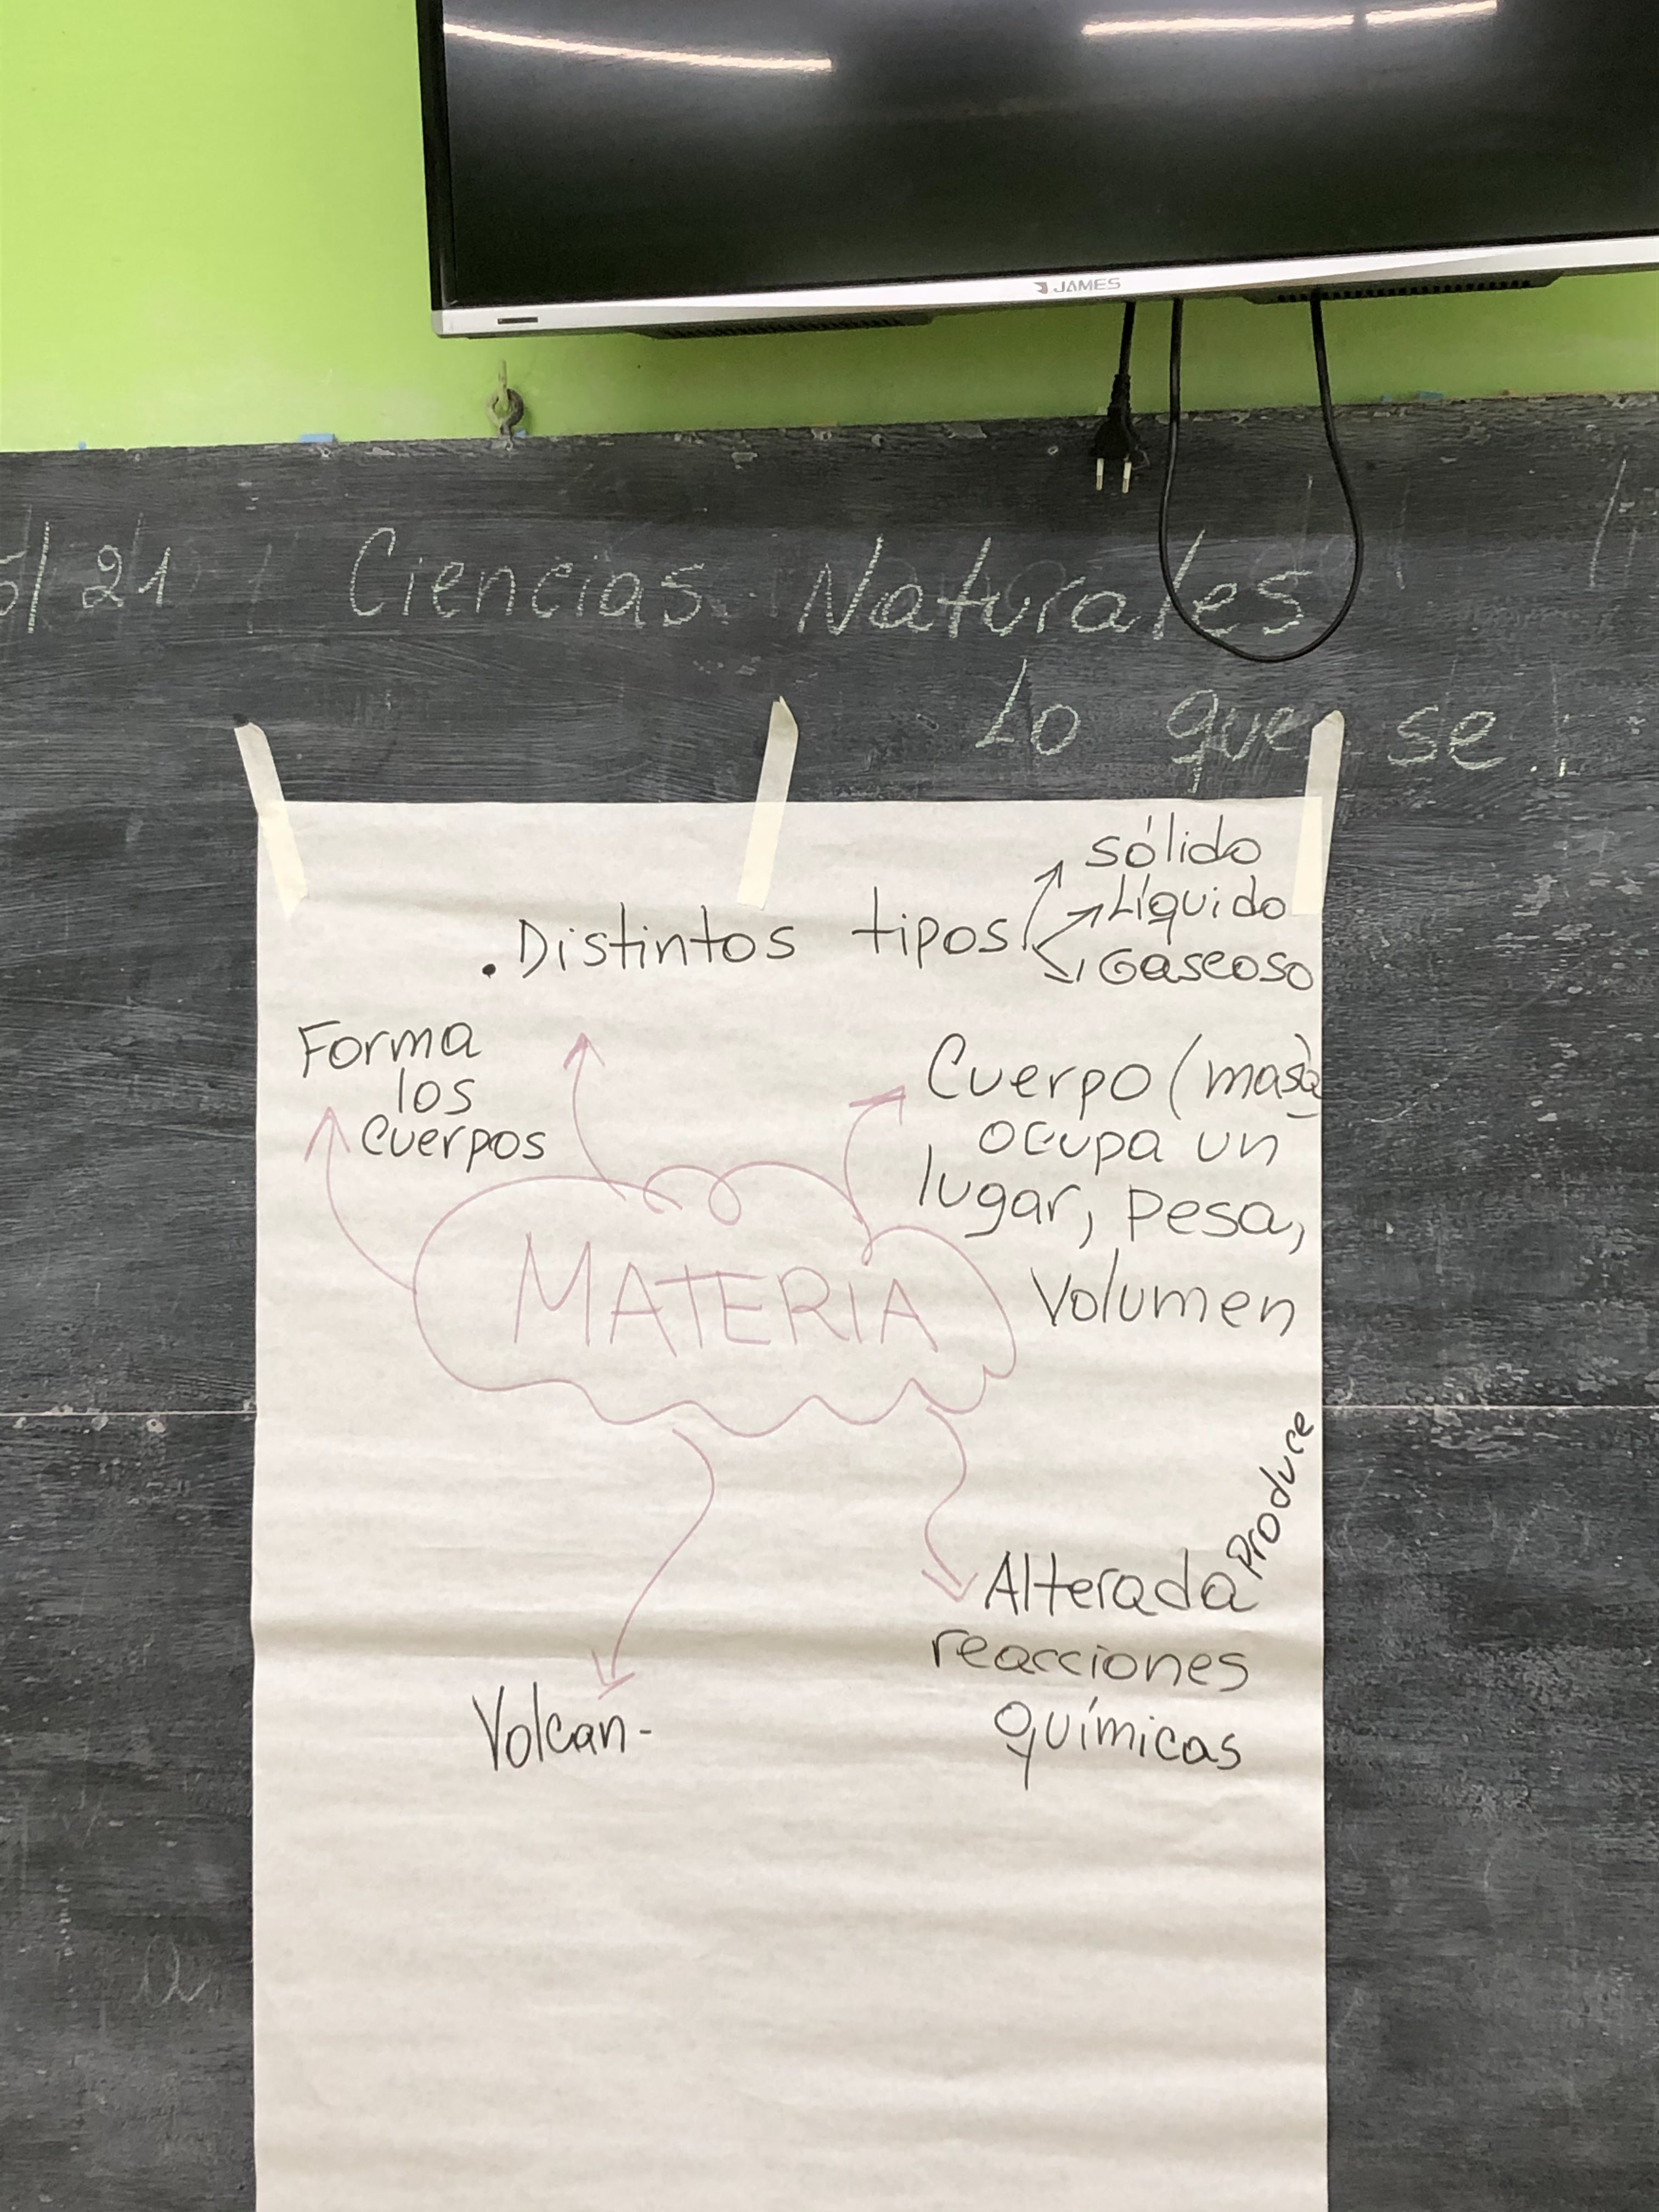 JAMES
5/21 Ciencias Naturales
Lo que se...
sólido
. Distintos tipos Líquido
Gaseoso
Forma
los
cuerpos
Cuerpo (masa)
ocupa un
lugar, pesa,
Volumen
MATERIA
Produce
Alterada
reacciones
químicas
Volcan-